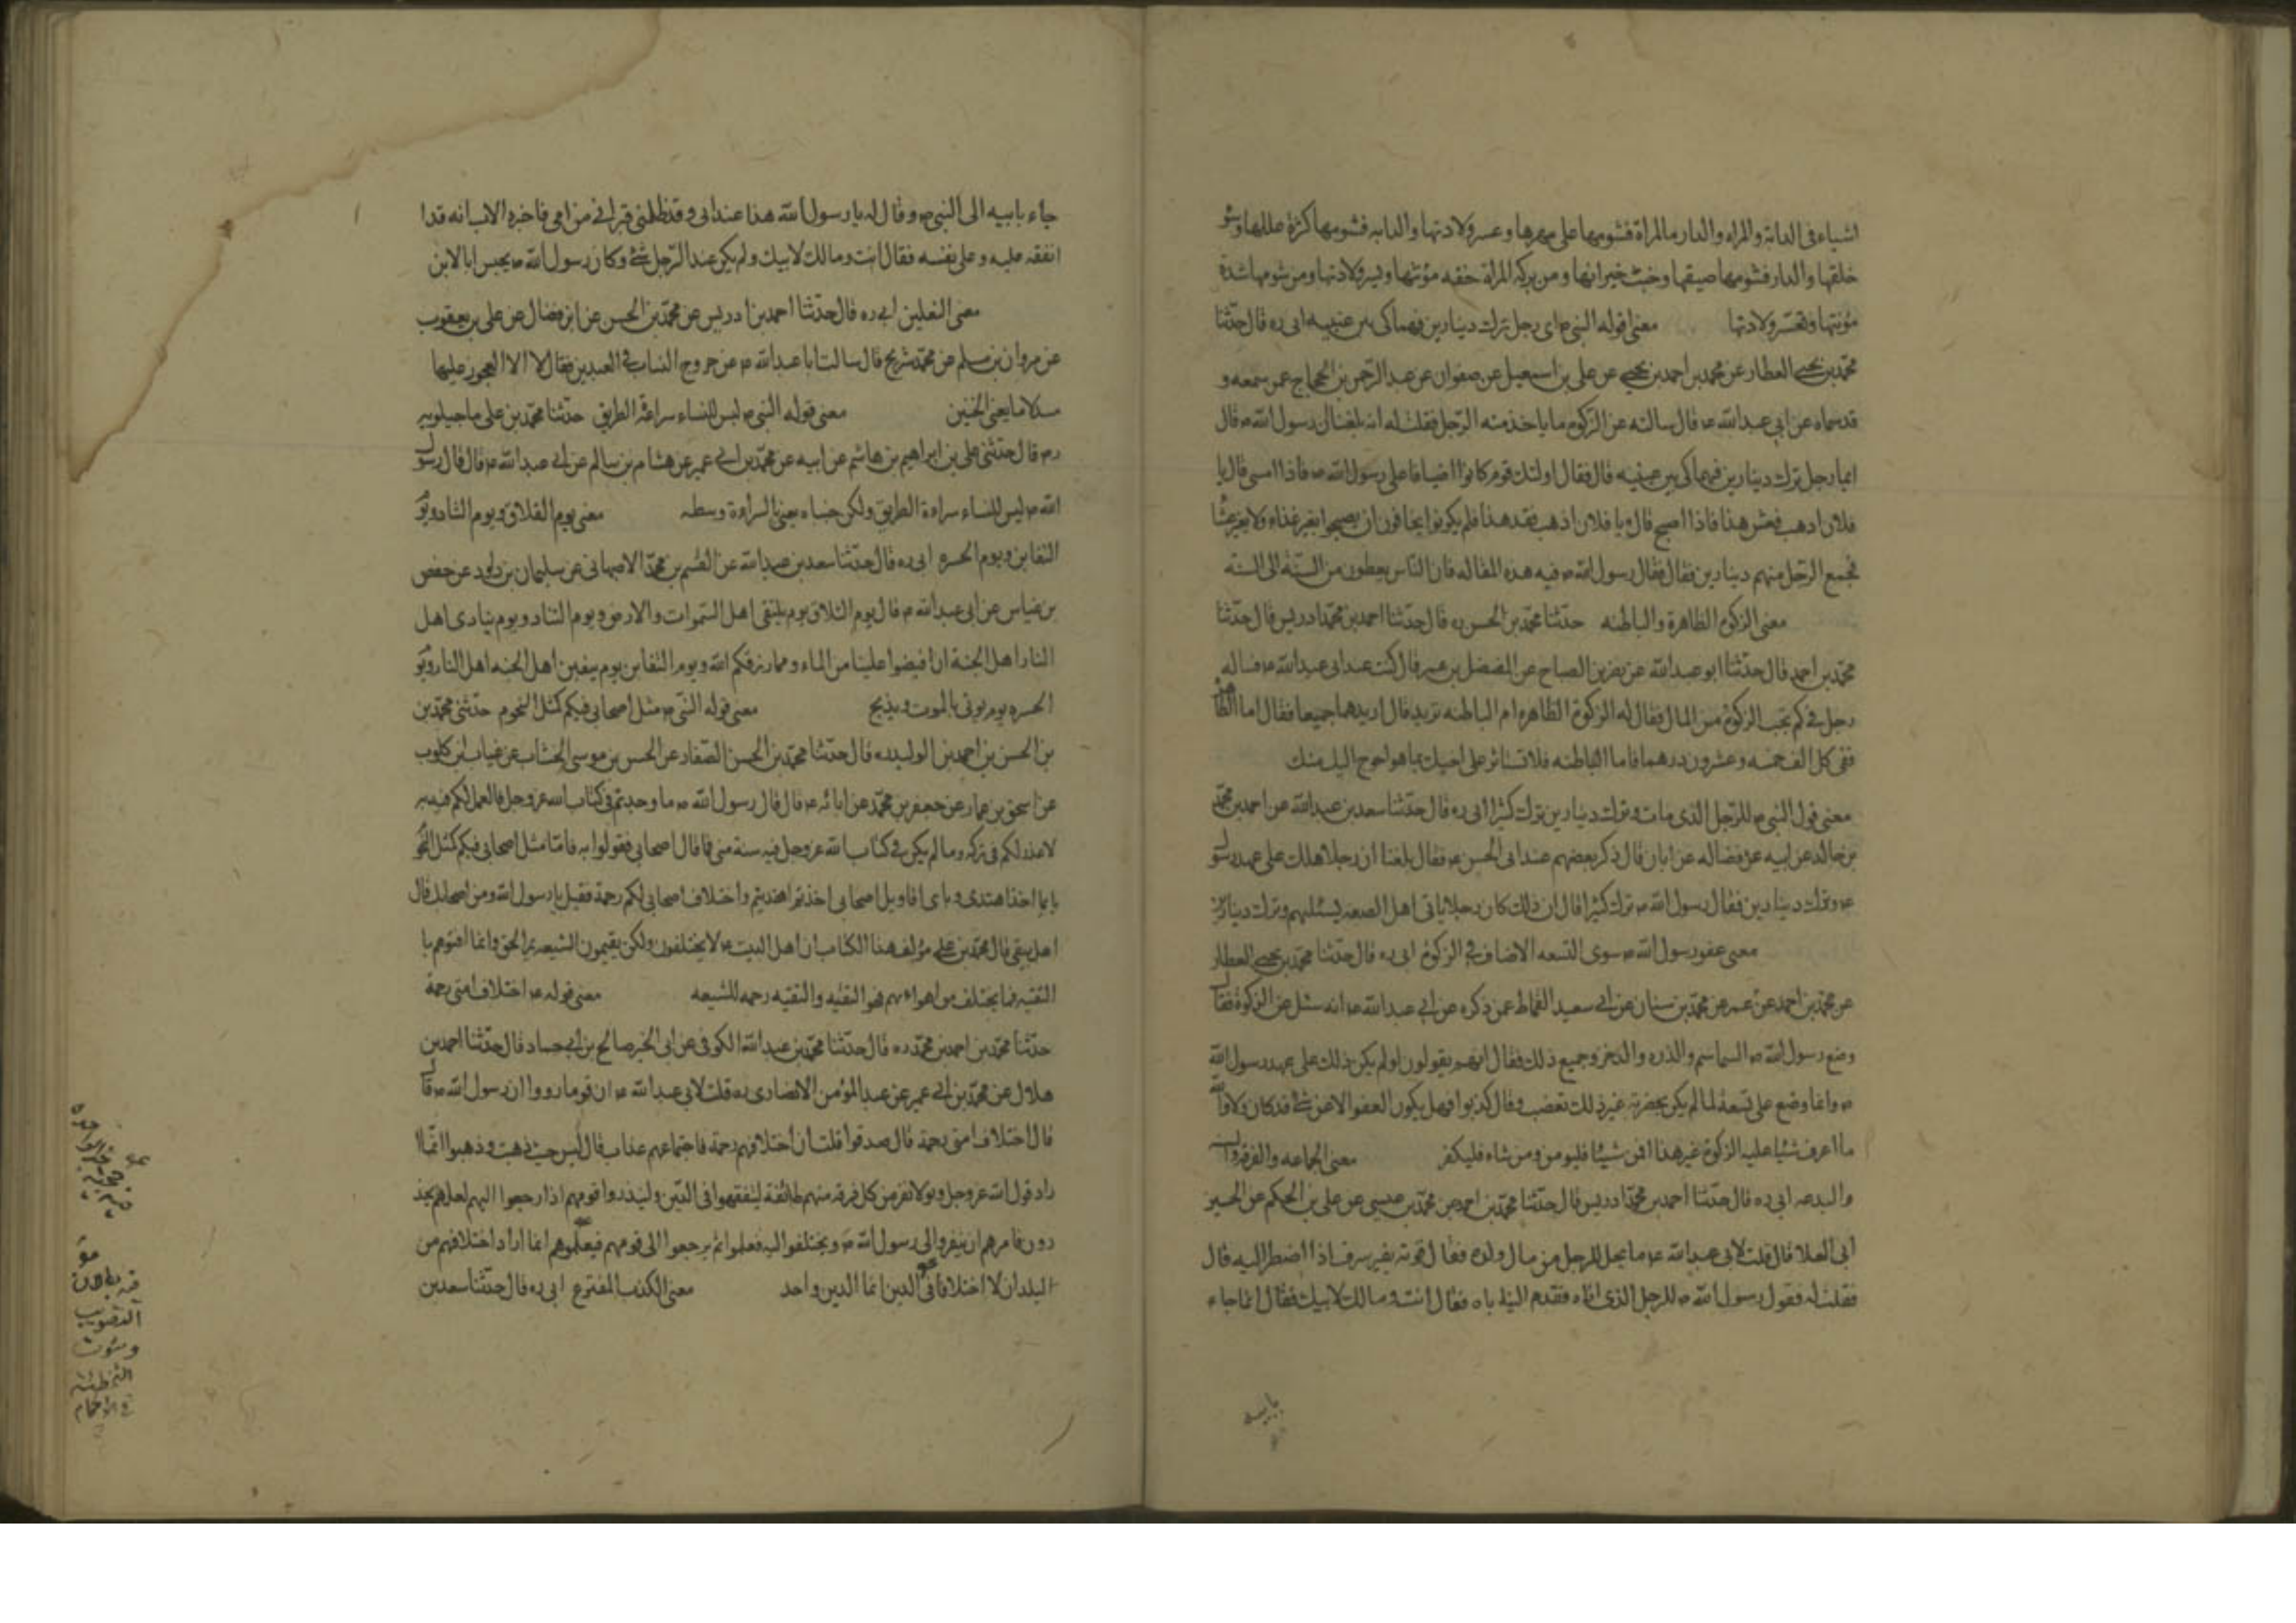 اشياء فى الدابة والمراه والدار فالمراة فشومها على مهرها وعسر ولادتها والدابه فشومها كثرة عللها وسو
خلقها والدار فشومها ضيقها وخبث جيرانها ومن بركه المراة خفه مؤنتها ويسر ولادتها ومن شومها شدة
مؤنتها وتعسر ولادتها معنى قوله النبى ص اى رجل ترك دينارين فهما كى بين عينيه ابى ره قال حدثنا
محمد بن يحيى العطار عن محمد بن احمد بن يحيى عن على بن اسمعيل عن صفوان عن عبد الرحمن بن الحجاج عمن سمعه و
قد سماه عن ابى عبد الله ع قال سالته عن الزكوة ما ياخذ منه الرجل فقلت له انه بلغنا ان رسول الله ص قال
ايما رجل ترك دينارين فهما كى بين عينيه قال فقال اولئك قوم كانوا اضيافا على رسول الله ص فاذا امسى قال يا
فلان اذهب فعش هذا فاذا اصبح قال ويا فلان اذهب فغد هذا فلم يكونوا يخافون ان يصبحوا بغير غذاء ولا بغير عشا
فجمع الرجل منهم دينارين فقال فقال رسول الله ص فيه هذه المقاله فان الناس يعطون من السنة الى السنة
معنى الزكوة الظاهرة والباطنه حدثنا محمد بن الحسن ره قال حدثنا احمد بن محمد ادريس قال حدثنا
محمد بن احمد قال حدثنا ابو عبد الله عن نصر بن الصباح عن المفضل بن عمر قال كنت عند ابى عبد الله ع فساله
رجل فى كم تجب الزكوة من المال فقال له الزكوة الظاهره ام الباطنه تريد قال اريدهما جميعا فقال اما الظاهرة
ففى كل الف خمسه وعشرون درهما فاما الباطنه فلا تستاثر على اخيك بما هو احوج اليك منك
معنى قول النبى ص للرجل الذى مات وترك دينارين ترك كثيرا ابى ره قال حدثنا سعد بن عبد الله عن احمد بن محمد
بن خالد عن ابيه عن فضاله عن ابان قال ذكر بعضهم عند ابى الحسن ع فقال بلغنا ان رجلا هلك على عهد رسول
ص وترك دينارين فقال رسول الله ص ترك كثيرا قال ان ذلك كان رجلا ياتى اهل الصفه ليسئلهم وترك دينارين
معنى عفو رسول الله ص سوى التسعه الاصناف فى الزكوة ابى ره قال حدثنا محمد بن يحيى العطار
عن محمد بن احمد عن عمر عن محمد بن سنان عن ابى سعيد القماط عمن ذكره عن ابى عبد الله ع انه سئل عن الزكوة فقال
وضع رسول الله ص السماسم والذره والدخن وجميع ذلك فقال انهم يقولون لو لم يكن ذلك على عهد رسول الله
ص وانما وضع على تسعة لما لم يكن بحضرته غير ذلك تغضب وقال كذبوا فهل يكون العفو الا عن شئ قد كان ولا والله
ما اعرف شيئا عليه الزكوة غير هذا فمن شاء فليومن ومن شاء فليكفر معنى الجماعه والفرقه والسنه
والبدعه ابى ره قال حدثنا احمد بن محمد ادريس قال حدثنا محمد بن احمد عن محمد بن عيسى عن على بن الحكم عن الحسين
ابى العلا قال قلت لابى عبد الله ع ما يحل للرجل من مال ولده فقال قوته بغير سرف اذا اضطر اليه قال
فقلت له فقول رسول الله ص للرجل الذى اتاه فقدم اليه اباه فقال انت ومالك لابيك فقال انما جاء
بابيه
جاء بابيه الى النبى ص وقال له يا رسول الله هذا عند ابى وقد ظلمنى ميراثى من امى فاخبره الاب انه قد
انفقه عليه وعلى نفسه فقال انت ومالك لابيك ولم يكن عند الرجل شئ وكان رسول الله ص يحبس ابا لابن
معنى النعلين ابى ره قال حدثنا احمد بن ادريس عن محمد بن الحسن عن ابن فضال عن على بن يعقوب
عن مروان بن مسلم عن محمد شريح قال سالت ابا عبد الله ع عن خروج النساء فى العيدين فقال لا الا العجوز عليها
منقلاها يعنى الخفين معنى قوله النبى ص ليس للنساء سراة الطريق حدثنا محمد بن على ماجيلويه
ره قال حدثنى على بن ابراهيم بن هاشم عن ابيه عن محمد بن ابى عمير عن هشام بن سالم عن ابى عبد الله ع قال قال رسول
الله ص ليس للنساء سراة الطريق ولكن جنباه يعنى بالسراوة وسطه معنى يوم التلاق ويوم التناد ويوم
التغابن ويوم الحسرة ابى ره قال حدثنا سعد بن عبد الله عن القسم بن محمد الاصبهانى عن سليمان بن داود عن حفص
بن غياس عن ابى عبد الله ع قال يوم التلاق يوم يلتقى اهل السموات والارض ويوم التناد ويوم ينادى اهل
النار اهل الجنة ان افيضوا علينا من الماء ومما رزقكم الله ويوم التغابن يوم يغبن اهل الجنه اهل النار ويوم
الحسره يوم يوتى بالموت ويذبح معنى قوله النبى ص مثل اصحابى فيكم كمثل النجوم حدثنى محمد بن
بن الحسن بن احمد بن الوليد ره قال حدثنا محمد بن الحسن الصفار عن الحسن بن موسى الخشاب عن غياث بن كلوب
عن اسحق بن عمار عن جعفر بن محمد عن ابائه ع قال قال رسول الله ص ما وجدتم فى كتاب الله عز وجل فالعمل لكم فيه به
لا عذر لكم فى تركه وما لم يكن فى كتاب الله عز وجل فيه سنة منى فما قال اصحابى فقولوا به فانما مثل اصحابى فيكم كمثل النجوم
بايها اخذ اهتدى وباى اقاويل اصحابى اخذتم اهتديتم واختلاف اصحابى لكم رحمة فقيل يا رسول الله ومن اصحابك قال
اهل بيتى قال محمد بن على مؤلف هذا الكتاب ان اهل البيت ع لا يختلفون ولكن يفتون الشيعه بمر الحق وانما افتوهم با
التقيه فما يختلف من اهوائهم فهو التقيه والتقيه رحمه للشيعه معنى قوله ع اختلاف امتى رحمة
حدثنا محمد بن احمد بن محمد ره قال حدثنا محمد بن عبد الله الكوفى عن ابى الخير صالح بن ابى حماد قال حدثنا احمد بن
هلال عن محمد بن ابى عمير عن عبد المؤمن الانصارى ره قلت لابى عبد الله ع ان قوما رووا ان رسول الله ص قال
قال اختلاف امتى رحمة قال صدقوا قلت ان اختلافهم رحمة فاجتماعهم عذاب قال ليس حيث ذهبت وذهبوا انما ا
راد قول الله عز وجل ولولا نفر من كل فرقه منهم طائفة ليتفقهوا فى الدين ولينذروا قومهم اذا رجعوا اليهم لعلهم يحذ
رون فامرهم ان ينفروا الى رسول الله ص ويختلفوا اليه فتعلموا ثم يرجعوا الى قومهم فيعلموهم انما اراد اختلافهم من
البلدان لا اختلافا فى الدين انما الدين واحد معنى الكذب المفترع ابى ره قال حدثنا سعد بن